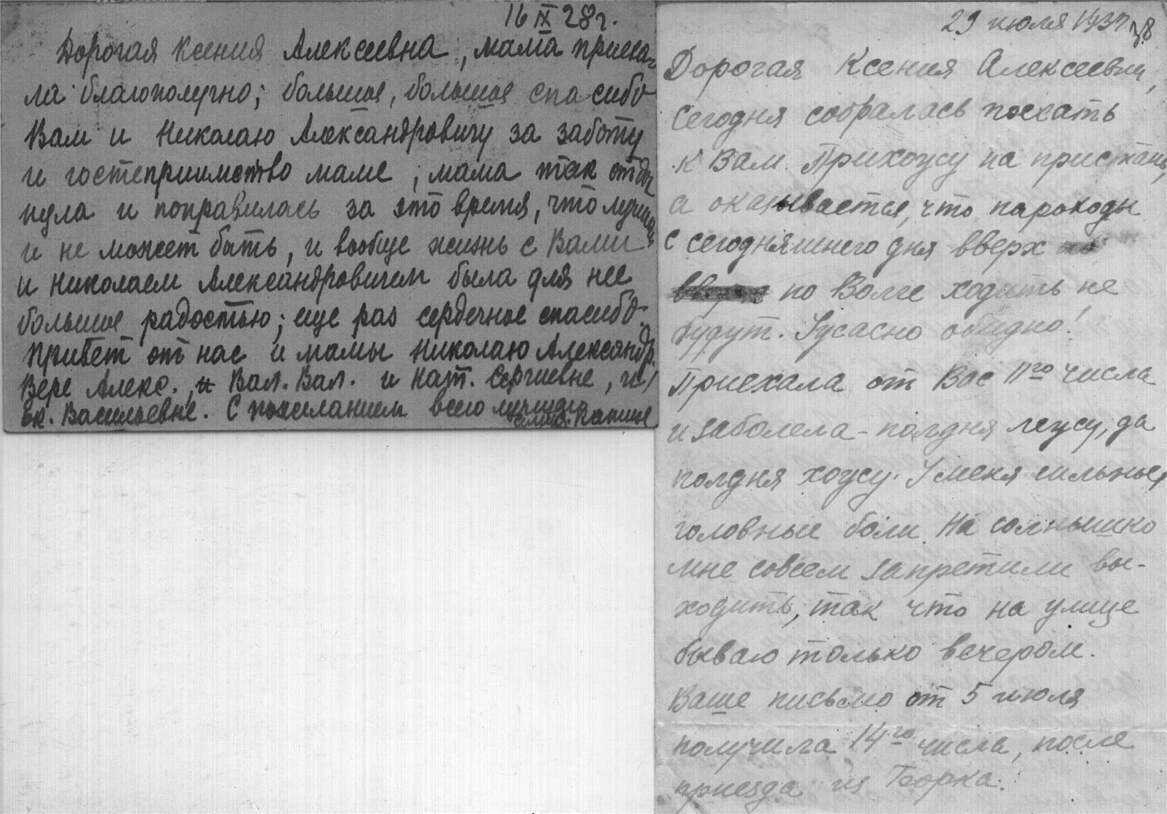 16 IX 28 г.
Дорогая Ксения Алексеевна, мама приеха-
ла благополучно; большое, большое спасибо
Вам и Николаю Александровичу за заботу
и гостеприимство маме, мама так отдох
нула и поправилась за это время, что лучше
и не может быть, и вообще жизнь с Вами
и Николаем Александровичем была для нее
большой радостью; еще раз сердечное спасибо.
Привет от нас и мамы Николаю Александр.
Вере Алекс., Вал. Вал. и Нат. Сергиевне,
Ек. Васильевне. С пожеланием всего лучшего
29 июля 1937
Дорогая Ксения Алексеевна,
Сегодня собралась поехать
к Вам. Прихожу на пристань,
а оказывается, что пароходы
с сегодняшнего дня вверх
по Волге ходить не
будут. Ужасно обидно!
Приехала от Вас 11го числа
и заболела - полдня лежу, да
полдня хожу. У меня сильные
головные боли. На солнышко
мне совсем запретили вы-
ходить, так что на улице
бываю только вечером.
Ваше письмо от 5 июля
получила 14го числа, после
приезда из Борка.